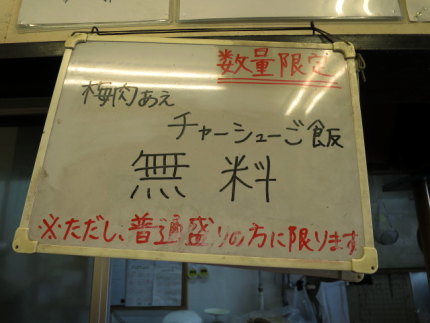 数量限定
梅肉あえ
チャーシューご飯
無料
※ただし、普通盛りの方に限ります